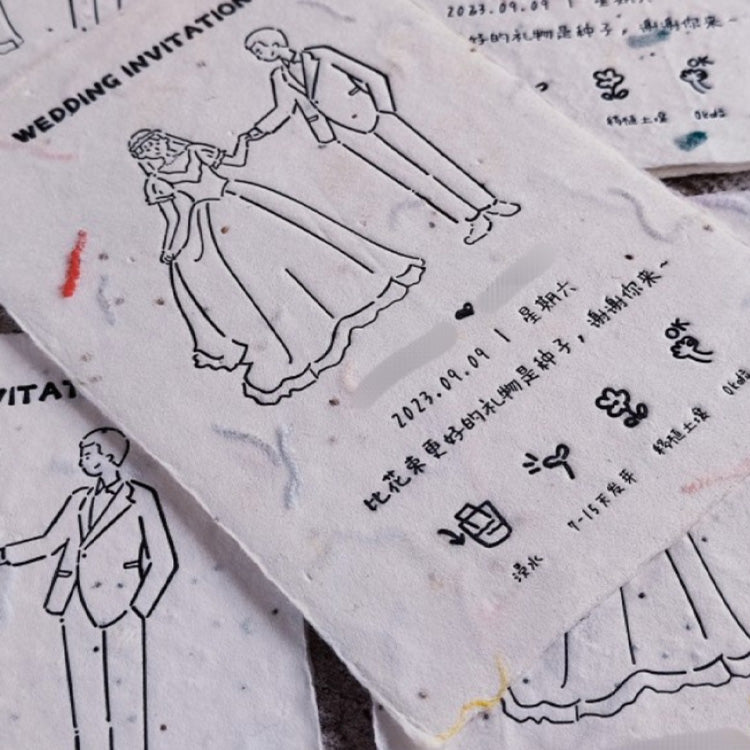 WEDDING INVITATION
2023.09.09 | 星期六
比花束更好的礼物是种子，谢谢你来~
浸水
7-15天发芽
移植土壤
OK
2023.09.09 |
好的礼物是种子，谢谢你来~
OK
移植土壤
VITAT